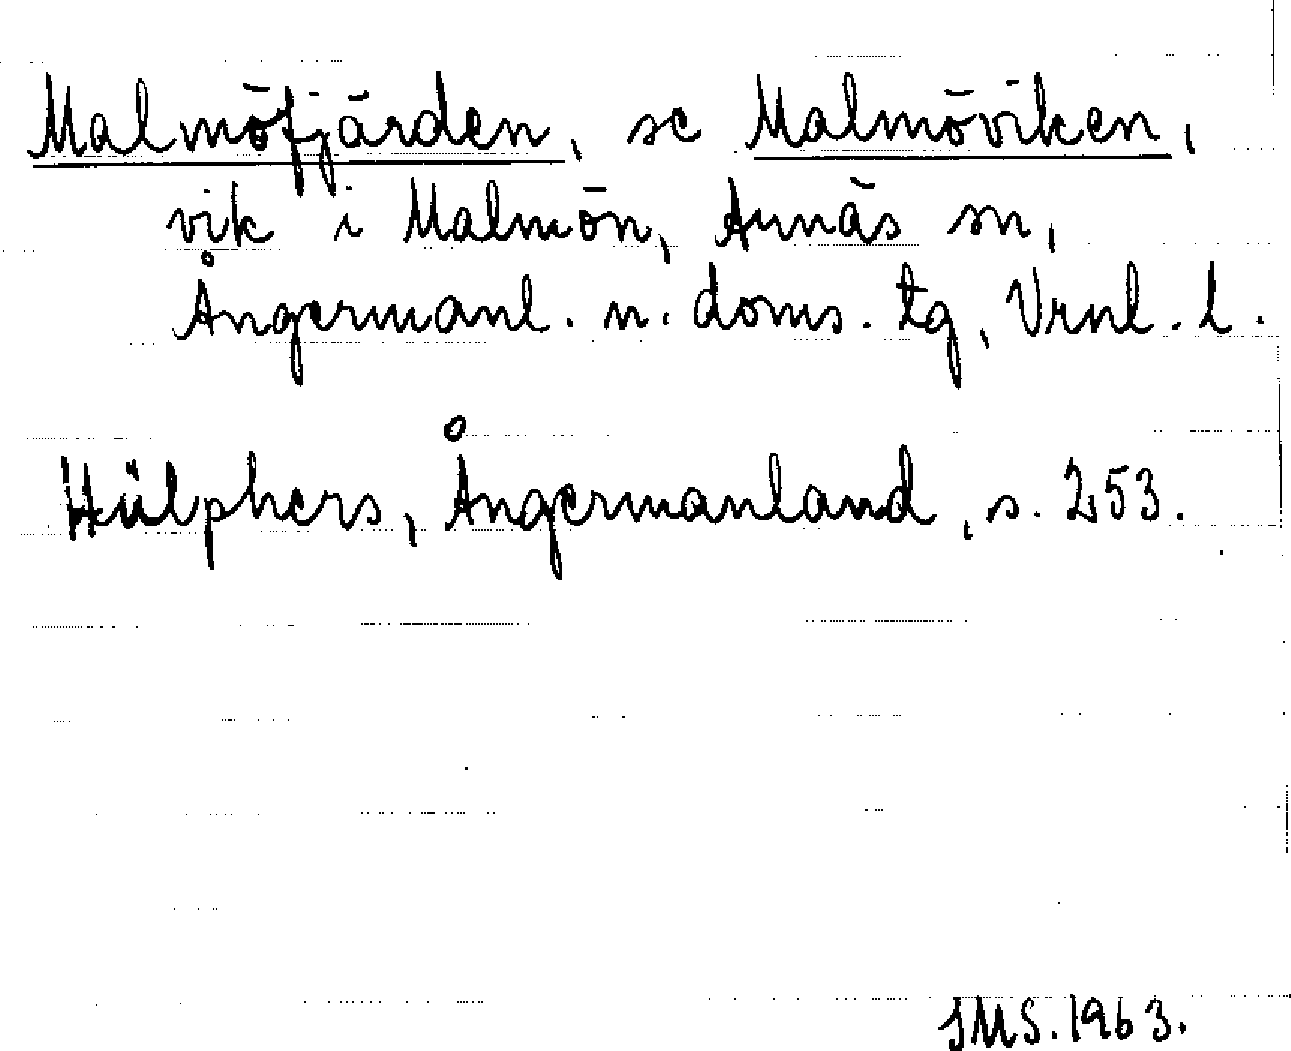 Malmöfjärden, se Malmöviken,
vik i Malmön, Arnäs sn,
Ångermanl. n. doms. tg, Vrnl. l.
Hülphers, Ångermanland, s. 253.
SMS. 1963.